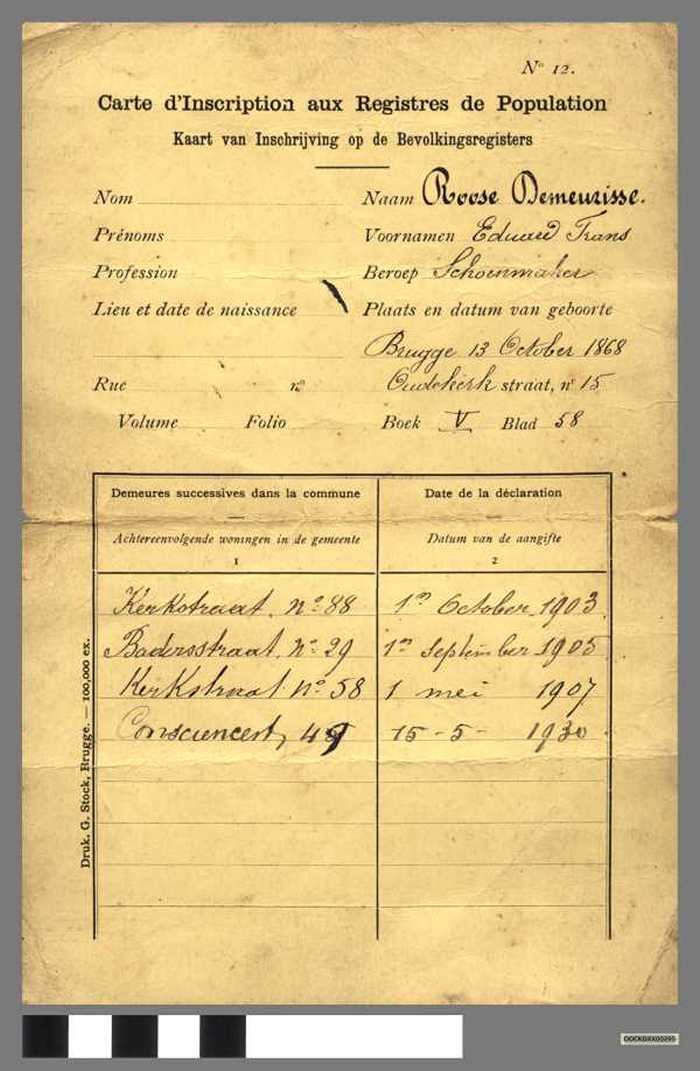 No 12.
Carte d'Inscription aux Registres de Population
Kaart van Inschrijving op de Bevolkingsregisters
Nom Naam Roose Demeurisse.
Prénoms Voornamen Eduard Frans
Profession Beroep Schoenmaker
Lieu et date de naissance Plaats en datum van geboorte
Brugge 13 October 1868
Rue no Oudekerk straat, no 15
Volume Folio Boek V Blad 58
Demeures successives dans la commune Date de la déclaration
Achtereenvolgende woningen in de gemeente Datum van de aangifte
1 2
Kerkstraat. no 88 1n October 1903
Badersstraat. No 29 1n September 1905
Kerkstraat no 58 1 mei 1907
Consciencest, 15-5- 1930
Druk. G. Stock, Brugge. — 100,000 ex.